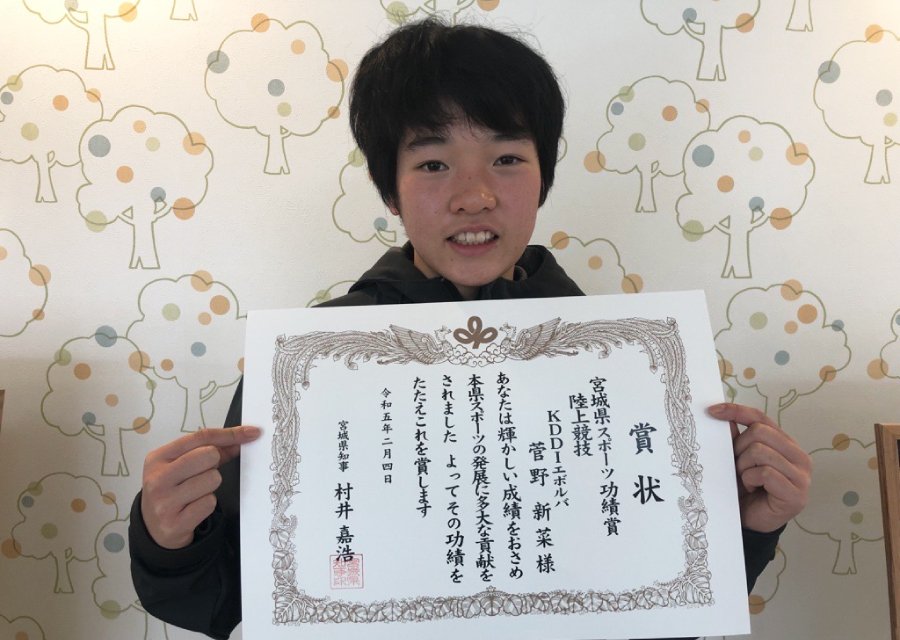 賞状
宮城県スポーツ功績賞
陸上競技
KDDIエボルバ
菅野新菜様
あなたは輝かしい成績をおさめ
本県スポーツの発展に多大な貢献を
されました よってその功績を
たたえこれを賞します
令和五年二月四日
宮城県知事 村井嘉浩